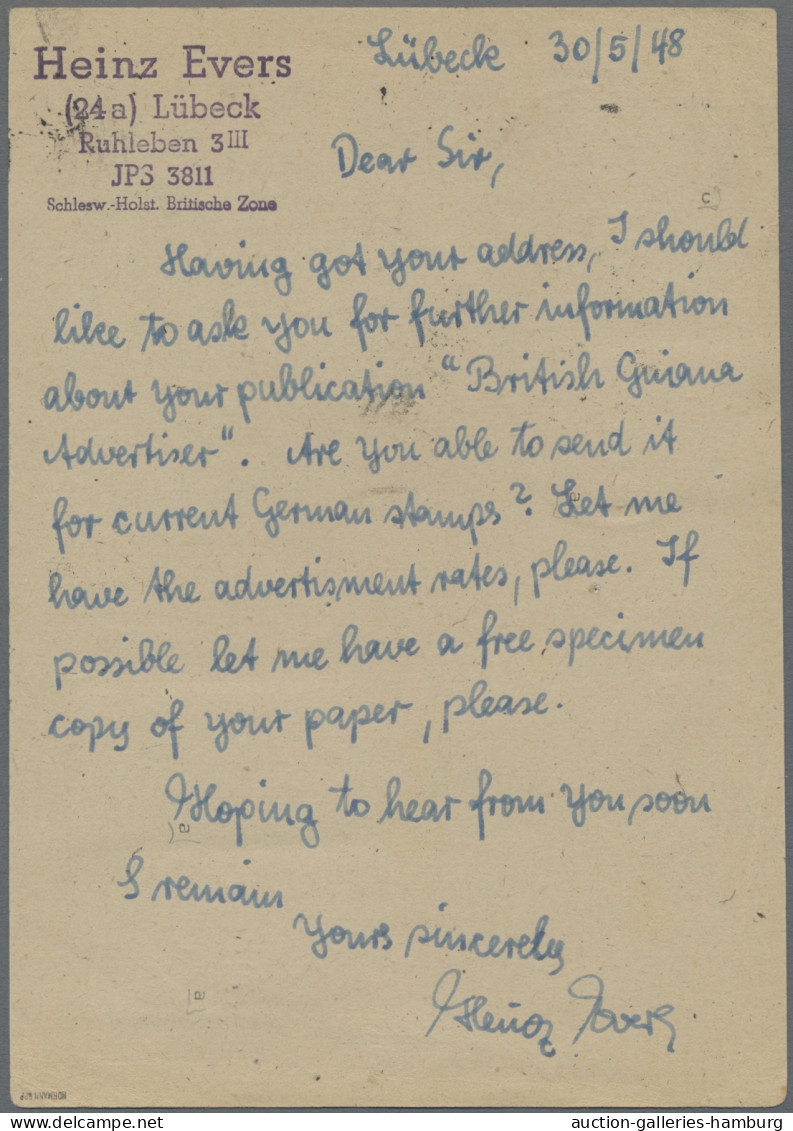 Heinz Evers
(24a) Lübeck
Ruhleben 3 III
JPS 3811
Schlesw.-Holst. Britische Zone
Lübeck 30/5/48
Dear Sir,
Having got your address, I should
like to ask you for further information
about your publication "British Guiana
Advertiser". Are you able to send it
for current German stamps? Let me
have the advertisment rates, please. If
possible let me have a free specimen
copy of your paper, please.
Hoping to hear from you soon
I remain
Yours sincerely
Heinz Evers
c
a
a
a
auction-galleries-hamburg